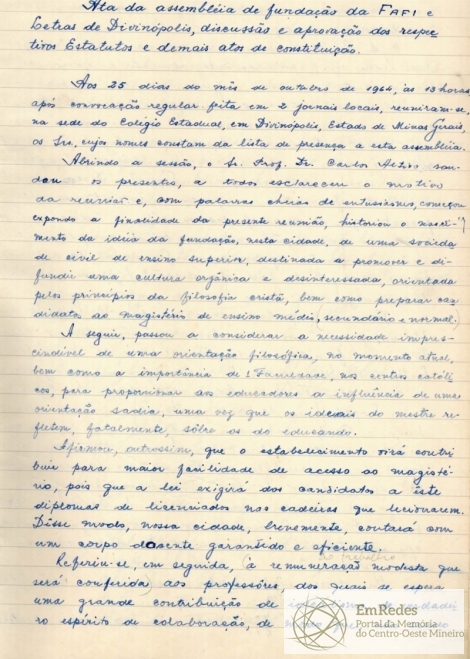 Ata da assembléia de fundação da FAFI e
Letras de Divinópolis, discussão e aprovação dos respec
tivos Estatutos e demais atos de constituição.
Aos 25 dias do mês de outubro de 1964, às 13 horas,
após convocação regular feita em 2 jornais locais, reuniram-se,
na sede do Colégio Estadual, em Divinópolis, Estado de Minas Gerais,
os Srs. cujos nomes constam da lista de presença a esta assembléia.
Abrindo a sessão, o Sr. Prof. Dr. Carlos Altivo sau-
dou os presentes, a todos esclareceu o motivo
da reunião e, com palavras cheias de entusiasmo, começou
expondo a finalidade da presente reunião, historiou o nasci-
mento da idéia da fundação, nesta cidade, de uma socieda
de civil de ensino superior, destinada a promover e di-
fundir uma cultura orgânica e desinteressada, orientada
pelos princípios da filosofia cristã, bem como preparar can
didatos ao magistério de ensino médio, secundário e normal.
A seguir, passou a considerar a necessidade impres-
cindível de uma orientação filosófica, no momento atual,
bem como a importância de 1 Faculdade, nos centros católi
cos, para proporcionar aos educadores a influência de uma
orientação sadia, uma vez que os ideais do mestre re-
fletem, fatalmente, sôbre os do educando.
Afirmou, outrossim, que o estabelecimento virá contri
buir para maior facilidade de acesso ao magisté-
rio, pois que a lei exigirá dos candidatos a êste
diplomas de licenciados nas cadeiras que lecionarem.
Dêsse modo, nossa cidade, brevemente, contará com
um corpo docente garantido e eficiente.
trabalho
Referiu-se, em seguida, à remuneração modesta que
será conferida aos professôres, dos quais se espera
uma grande contribuição de
ro espírito de colaboração, de
EmRedes
Portal da Memória
do Centro-Oeste Mineiro